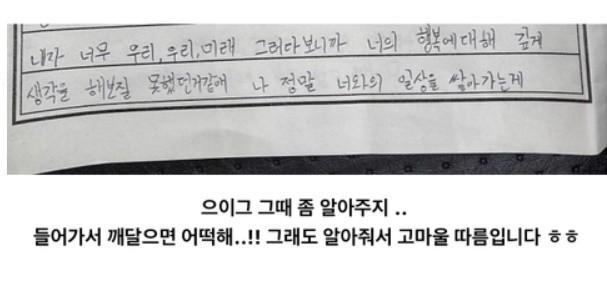 내가 너무 우리,우리,미래 그러다보니까 너의 행복에대해 깊게
생각을 해보질 못했던거같애 나 정말 너와의 일상을 쌓아가는게
으이그 그때 좀 알아주지 ..
들어가서 깨달으면 어떡해..!! 그래도 알아줘서 고마울 따름입니다 ㅎㅎ